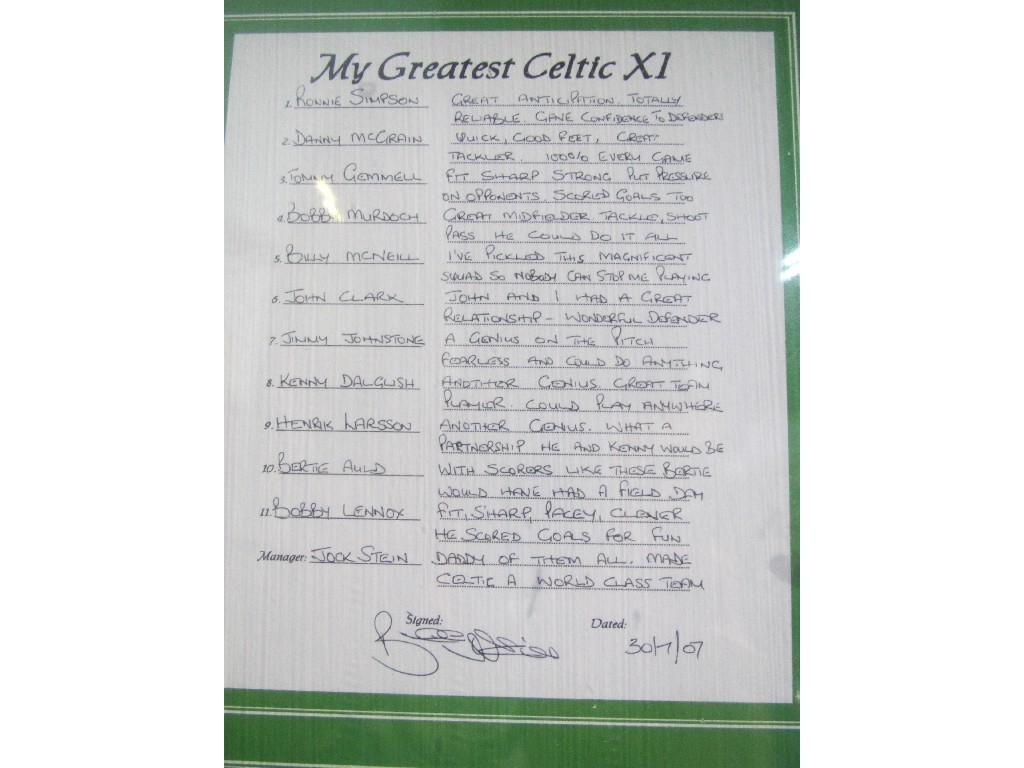 My Greatest Celtic XI
1. RONNIE SIMPSON GREAT ANTICIPITION. TOTALLY
RELIABLE. GAVE CONFIDENCE TO DEFENDERS
2. DANNY McGRAIN QUICK, GOOD FEET, GREAT
TACKLER. 100% EVERY GAME
3. TOMMY GEMMELL FIT SHARP STRONG PUT PRESSURE
ON OPPONENTS. SCORED GOALS TOO
4. BOBBY MURDOCH GREAT MIDFIELDER TACKLE, SHOOT
PASS HE COULD DO IT ALL
5. BILLY McNEILL I'VE PICKLED THIS MAGNIFICENT
SQUAD SO NOBODY CAN STOP ME PLAYING
6. JOHN CLARK JOHN AND I HAD A GREAT
RELATIONSHIP - WONDERFUL DEFENDER
7. JIMMY JOHNSTONE A GENIUS ON THE PITCH
FEARLESS AND COULD DO ANYTHING
8. KENNY DALGLISH ANOTHER GENIUS. GREAT TEAM
PLAYER. COULD PLAY ANYWHERE
9. HENRIK LARSSON ANOTHER GENIUS. WHAT A
PARTNERSHIP HE AND KENNY WOULD BE
10. BERTIE AULD WITH SCORERS LIKE THESE BERTIE
WOULD HAVE HAD A FIELD DAY
11. BOBBY LENNOX FIT, SHARP, PACEY, CLEVER
HE SCORED GOALS FOR FUN
Manager: JOCK STEIN DADDY OF THEM ALL. MADE
CELTIC A WORLD CLASS TEAM
Signed: Dated:
30/7/07